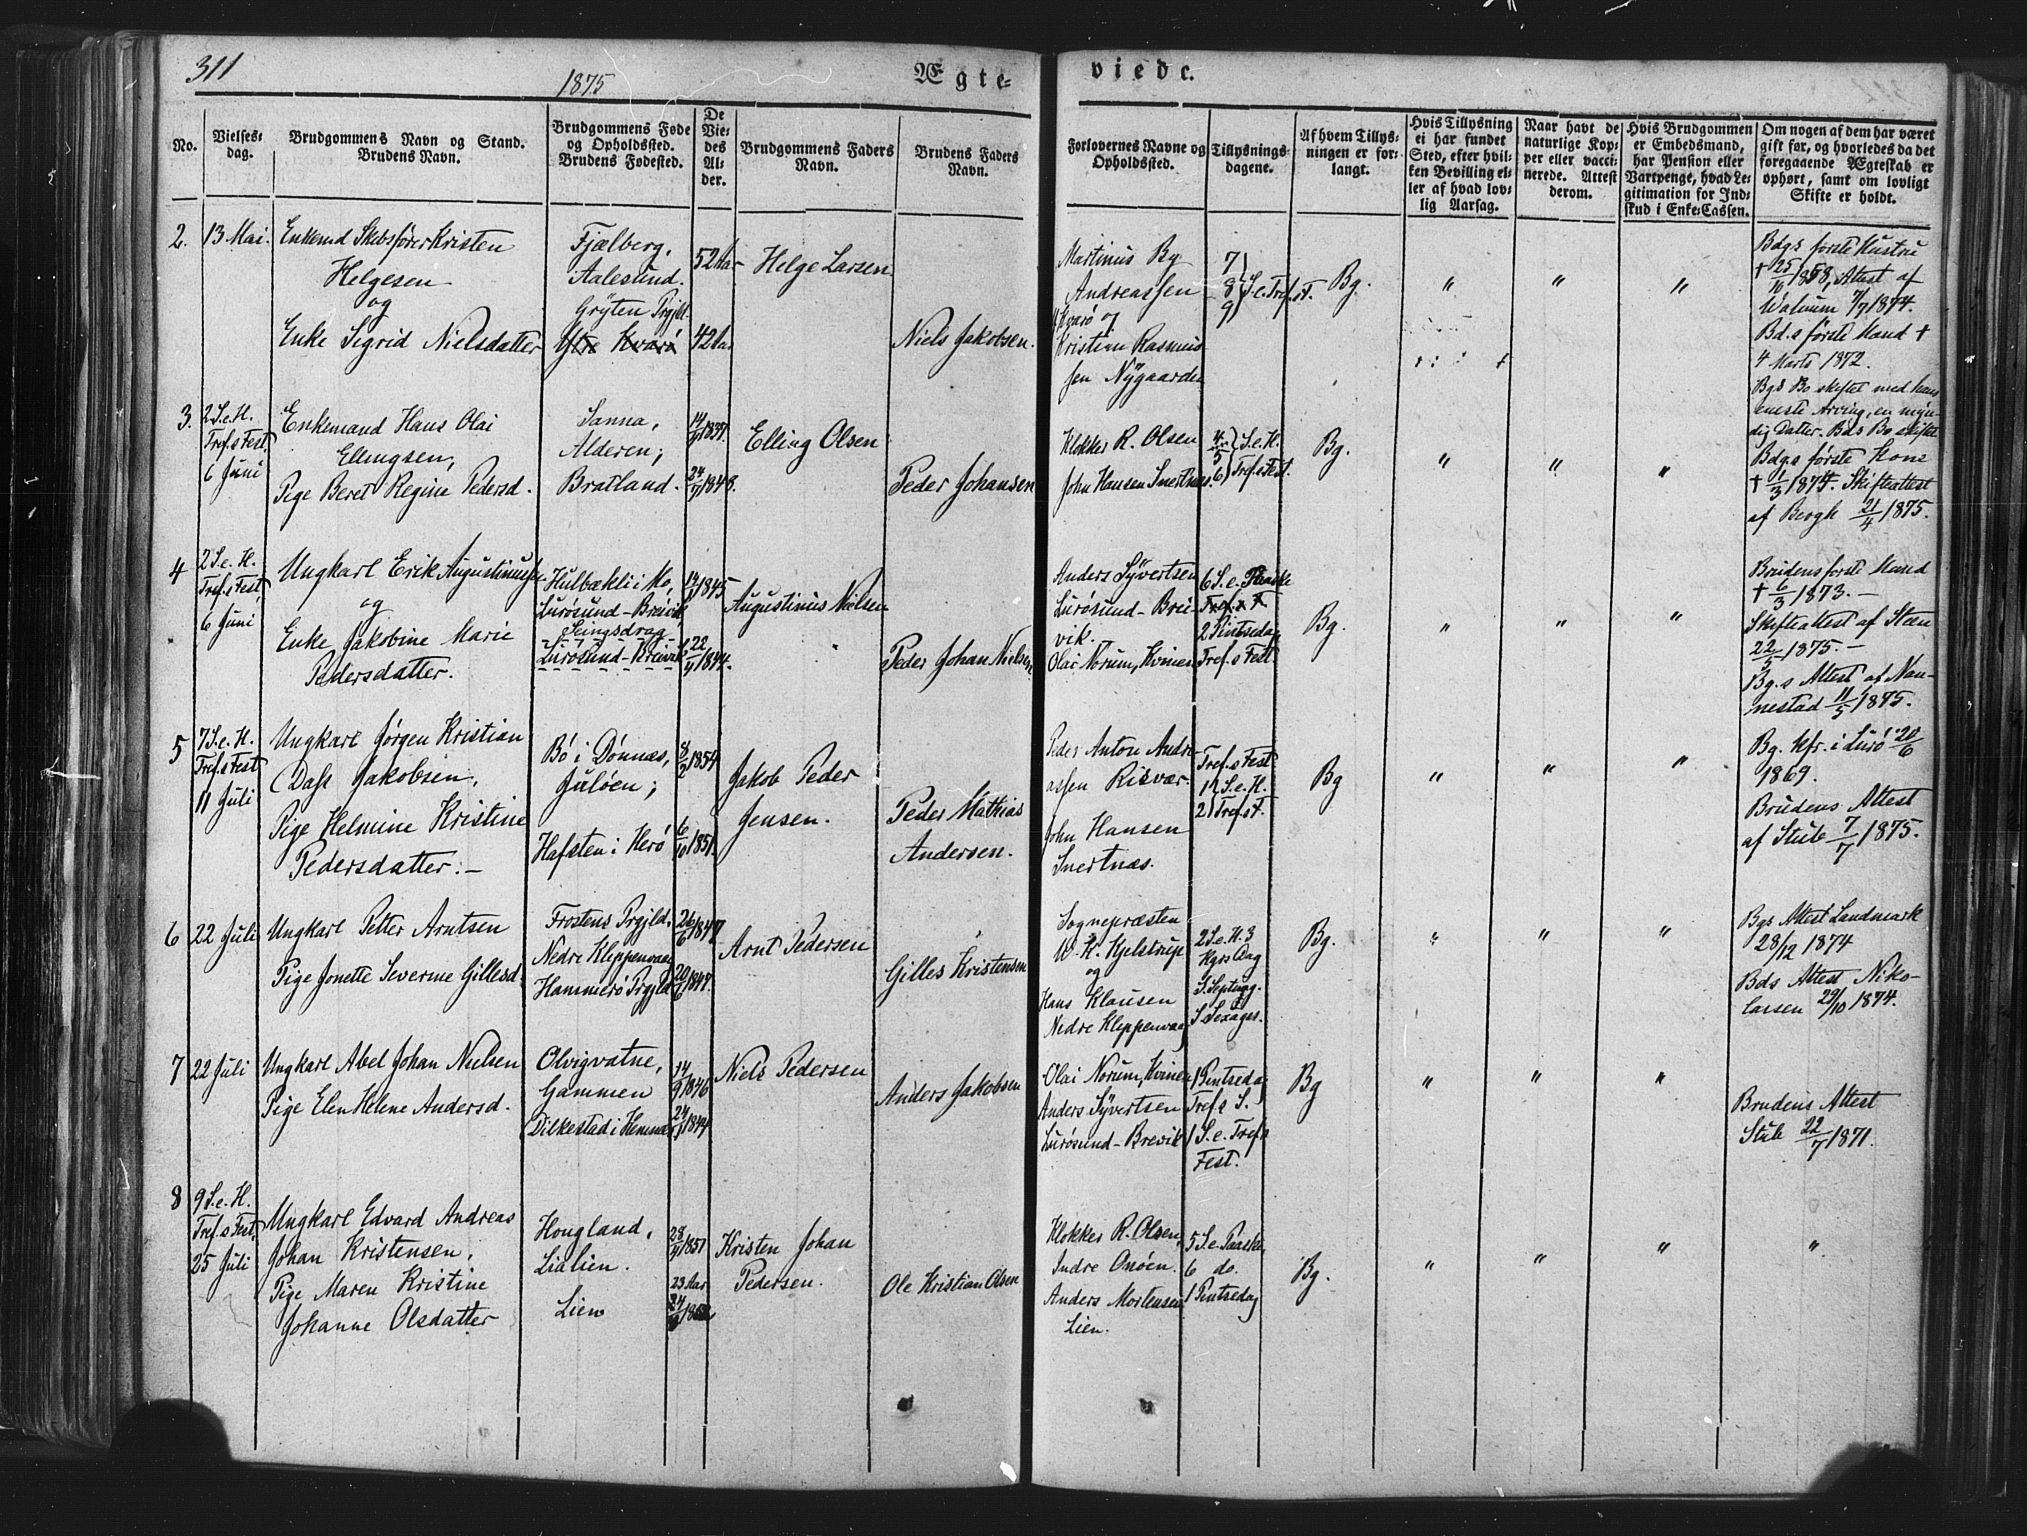 311
1875
Ægte-
viede.
No.
Vielses-
dag.
Brudgommens Navn og Stand.
Brudens Navn.
Brudgommens Føde
og Opholdssted.
Brudens Fødested.
De
Vie-
des
Al-
der.
Brudgommens Faders
Navn.
Brudens Faders
Navn.
Forlovernes Navne og
Opholdssted.
Tillysnings-
dagene.
Af hvem Tillys-
ningen er for-
langt.
Hvis Tillysning
ei har fundet
Sted, efter hvil-
ken Bevilling el-
ler af hvad lov-
lig Aarsag.
Naar havt de
naturlige Kop-
per eller vacci-
nerede. Attest
derom.
Hvis Brudgommen
er Embedsmand,
har Pension eller
Vartpenge, hvad Le-
gitimation for Ind-
skud i Enke-Cassen.
Om nogen af dem har været
gift før, og hvorledes da det
foregaaende Ægteskab er
ophørt, samt om lovligt
Skifte er holdt.
2.
13 Mai.
Enkemd Skibsfører Kristen
Helgesen
og
Enke Sigrid Nielsdatter
Fjælberg,
Aalesund.
Gryten Prgjld.
Kvarø
52 Aar
42 Aar
Helge Larsen
Niels Jakobsen.
Martinus By
Andreassen
Kvarø og
Kristian Rasmus
sen Nygaarden
7
8 S.e.Tref.sF.
9
Bg.
" " "
Bdgs første Hustru
+ 25/11 1858, Attest af
Walnum 7/7 1874.
Bd.s første Mand +
4 Marts 1872.
Bgs Bo skiftet med hans
eneste Arving, en myn-
dig Datter. Bds Bo skiftet
3.
2 S.e.H.
Tref.s Fest,
6 Juni
Enkemand Hans Olai
Ellingsen,
Pige Beret Regine Pedersd.
Sanna,
Alderen;
Bratland.
1837.
24 1848.
Elling Olsen
Peder Johansen
Klokker R. Olsen
John Hansen Snertnæs.
4
5 S.e.H.
6 Tref.s Fest.
Bg.
" " "
Bdgs første Kone
+ 1/3 1875. Skifteattest
af Bergh 21/4 1875.
4
2 S.e.H.
Tref.s Fest,
6 Juni
Ungkarl Erik Augustinussen
og
Enke Jakobine Marie
Pedersdatter.
Hulbækli i Mo,
Lurøsund-Breivik
Seingsdrag
Lurøsund-Breivik
1845
22 1844.
Augustinus Nielsen
Peder Johan Nielsen
Anders Syvertsen
Lurøsund-Brei-
vik.
Olai Norum, Kvinen
6 S.e. Paaske
Tref.s F.
2 Pintsedag
Tref.s Fest.
Bg.
" " "
Brudens første Mand
+ 6/3 1873.-
Skifteattest af Steen
22/5 1875.-
Bg.s Attest af Nan-
nestad 11/5 1875.
5
7 S.e.H.
Tref.s Fest
11 Juli
Ungkarl Jørgen Kristian
Dass Jakobsen,
Pige Helmine Kristine
Pedersdatter.-
Bø i Dønnæs,
Juløen;
Hafsten i Herø
8/2 1854
6/10 1851
Jakob Peder
Jensen.
Peder Mathias
Andersen.
Peder Anton Andre-
assen Risvær.
John Hansen
Snertnæs.
Tref.s Fest
1 S.e.H.
2 Tref.sF.
Bg
" " "
Bg. Kfr. i Lurø 20/6
1869.
Brudens Attest
af Stub 7/7 1875.
6
22 Juli
Ungkarl Petter Arntsen
Pige Jonette Severine Gillesd.
Frostens Prgjld.
Nedre Kleppenvaag
Hammerø Prgjld
26/6 1847
20 1847.
Arnt Pedersen
Gilles Kristensen
Sognepræsten
W. K. Hjelstrup
og
Hans Klausen
Nedre Kleppenvaag
2 S.e.H.3
Kgrs Dag
S. Septuag.
S. Sexages.
Bg.
" " "
Bgs Attest Landmark
28/12 1874
Bds Attest Niko-
laisen 29/10 1874.
7
22 Juli
Ungkarl Abel Johan Nielsen
Pige Elen Helene Andersd.
Olvigvatne,
Gammen
Dilkestad i Hemnæs
14/9 1846
24 1844
Niels Pedersen
Anders Jakobsen
Olai Norum, Kvinen
Anders Syvertsen
Lurøsund-Brevik
1 Pintsedag
Tref.s S.
1 S.e. Tref.s
Fest.
Bg
" " "
Brudens Attest
Stub 22/7 1871.
8
9 S.e.H.
Tref.s Fest,
25 Juli
Ungkarl Edvard Andreas
Johan Kristensen,
Pige Maren Kristine
Johanne Olsdatter
Hougland,
Lialien.
Lien
28 1851
23 Aar
24
Kristen Johan
Pedersen.
Ole Kristian Olsen
Klokker R. Olsen,
Indre Onøen.
Anders Mortensen
Lien.
5 S.e. Paaske,
6 do.
1 Pintsedag
Bg.
" " " "